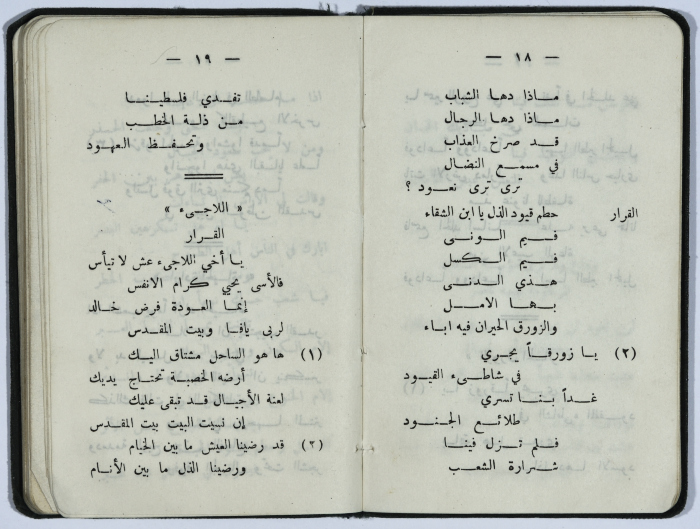 — ١٨ —
ماذا دها الشباب
ماذا دها الرجال
قد صرخ العذاب
في مسمع النضال
ترى ترى نعود ؟
القرار حطم قيود الذل يا ابن الشقاء
فيم الونى
فيم الكسل
هذي الدنى
بها الامل
والزورق الحيران فيه اباء
(٢) يا زورقاً يجري
في شاطىء القيود
غداً بنا تسري
طلائع الجنود
فلم تزل فينا
شرارة الشعب
— ١٩ —
تفدي فلسطينا
من ذلة الخطب
وتحفظ العهود
« اللاجىء »
القرار
يا أخي اللاجىء عش لا تيأس
فالأسى يحيي كرام الانفس
إنما العودة فرض خالد
لربى يافا وبيت المقدس
(١) ها هو الساحل مشتاق اليك
أرضه الخصبة تحتاج يديك
لعنة الأجيال قد تبقى عليك
إن نسيت البيت بيت المقدس
(٢) قد رضينا العيش ما بين الخيام
ورضينا الذل ما بين الأنام